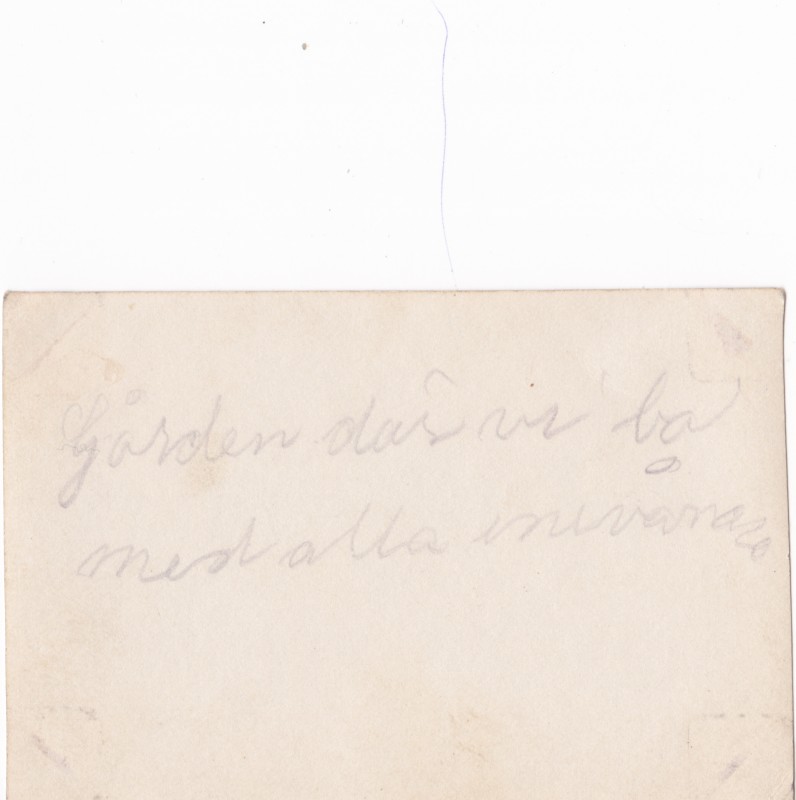 Gården där vi bo
med alla inevånare